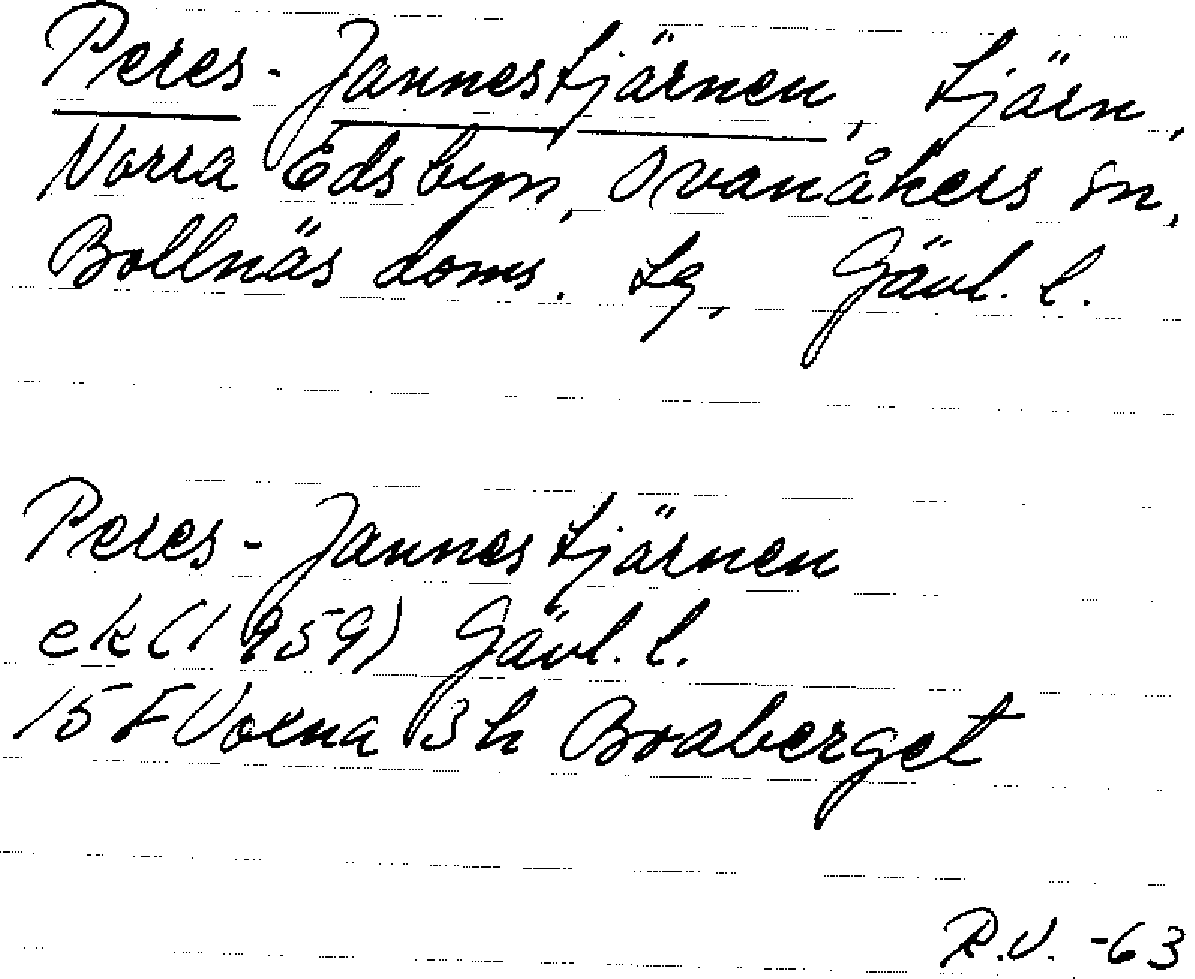 Peres-Jannestjärnen, tjärn,
Norra Edsbyn, Ovanåkers sn,
Bollnäs doms. tg, Gävl. l.
Peres-Jannestjärnen
ek (1959) Gävl. l.
15 F Voxna 3h Boaberget
R.V. -63